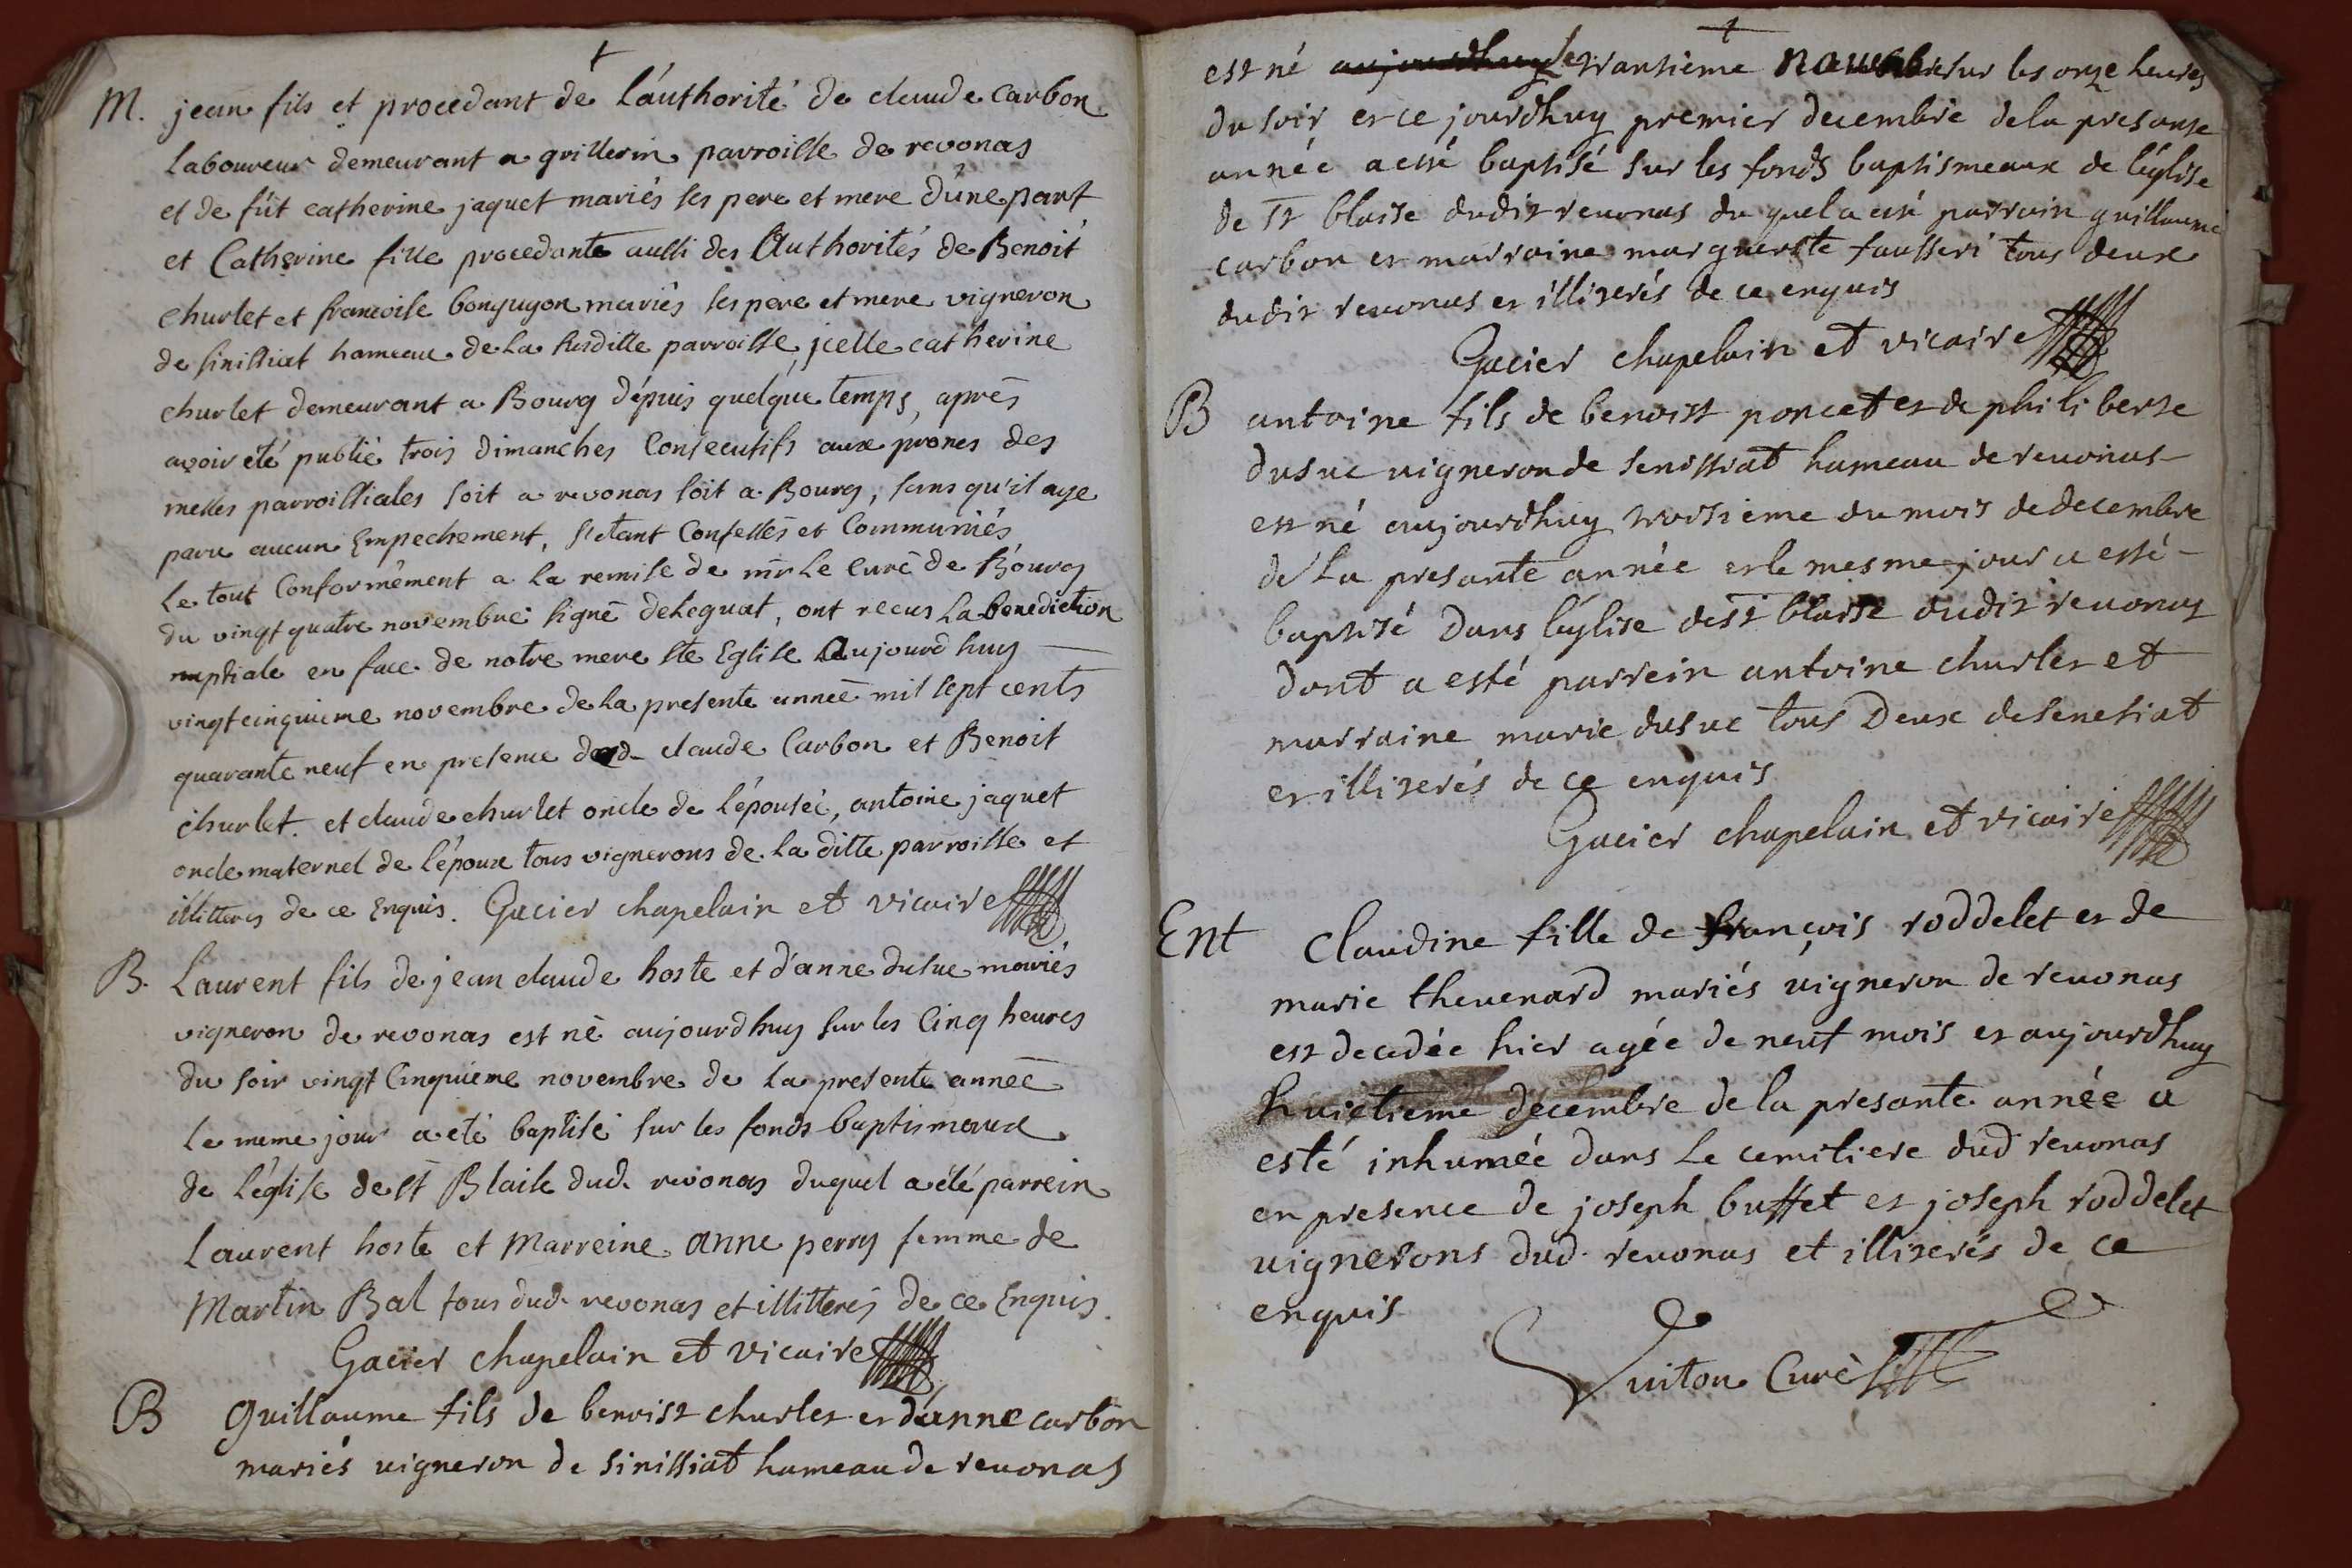 M. jean fils et procedant de l'authorité de claude Carbon
Laboureur demeurant a grillerin parroisse de revonas
et de fût catherine jaquet mariés ses pere et mere d'une part
et Catherine fille procedante aussi des Authorités de Benoit
churlet et francoise bonguyon mariés ses père et mere vigneron
de sinissiat hameau de la susditte parroisse, jcelle catherine
churlet demeurant a Bourg dépuis quelque temps, après
avoir eté publié trois dimanches Consecutifs aux prones des
messes parroissiales soit a revonas soit a Bourg, sans qu'il aye
paru aucun Empechement, s'etant Confessés et Communiés
Le tout Conformément a la remise de mr le Curé de Bourg
du vingt quatre novembre signé deleguat, ont recus La benediction
nuptiale en face de notre mere ste Eglise Aujourd huy
vingtcinquieme novembre de la presente année mil sept cents
quarante neuf en presence dud. claude Carbon et Benoit
churlet. et claude churlet oncle de l'épousée, antoine jaquet
oncle maternel de l'époux tous vignerons de la ditte parroisse et
illitteres de ce Enquis. Gacier chapelain et vicaire
B. Laurent fils de jean claude hoste et d'anne dusuc mariés
vigneron de revonas est né aujourd huy sur les Cinq heures
du soir vingt Cinquieme novembre de la presente année
Le meme jour a eté baptisé sur les fonds baptismaux
de l'église de st Blaise dud. revonas duquel a été parrein
Laurent hoste et Marreine anne perry femme de
Martin Bal tous dud. revonas et illitterés de ce Enquis.
Gacier chapelain et vicaire
B guillaume fils de benoist churlet et d'anne carbon
mariés vigneron de sinissiat hameau de revonas
est né aujourdhuy le trantieme novembre sur les onze heures
du soir et ce jourdhuy premier decembre de la presante
année a esté baptisé sur les fonds baptismeaux de l'église
de st blaise dudit revonas du quel a esté parrain guillaume
carbon et marraine marguerite fausseri tous deux
dudit revonas et illiterés de ce enquis
Gacier chapelain et vicaire
B antoine fils de benoist poncet et de philiberte
dusuc vigneron de senissiat hameau de revonas
est né aujourdhuy troisieme du mois de decembre
de la presante année et le mesme jour a esté
baptisé dans l'église de st blaise dudit revonas
dont a esté parrein antoine churlet et
marraine marie dusuc tous Deux de senesiat
et illiterés de ce enquis
Gacier chapelain et vicaire
Ent Claudine fille de françois roddelet et de
marie thevenard mariés vigneron de revonas
est decedée hier agée de neuf mois et aujourdhuy
huictieme decembre de la presante année a
esté inhumée dans le cemitiere dud revonas
en presence de joseph buffet et joseph roddelet
vignerons dud. revonas et illiterés de ce
enquis
Vuiton Curé